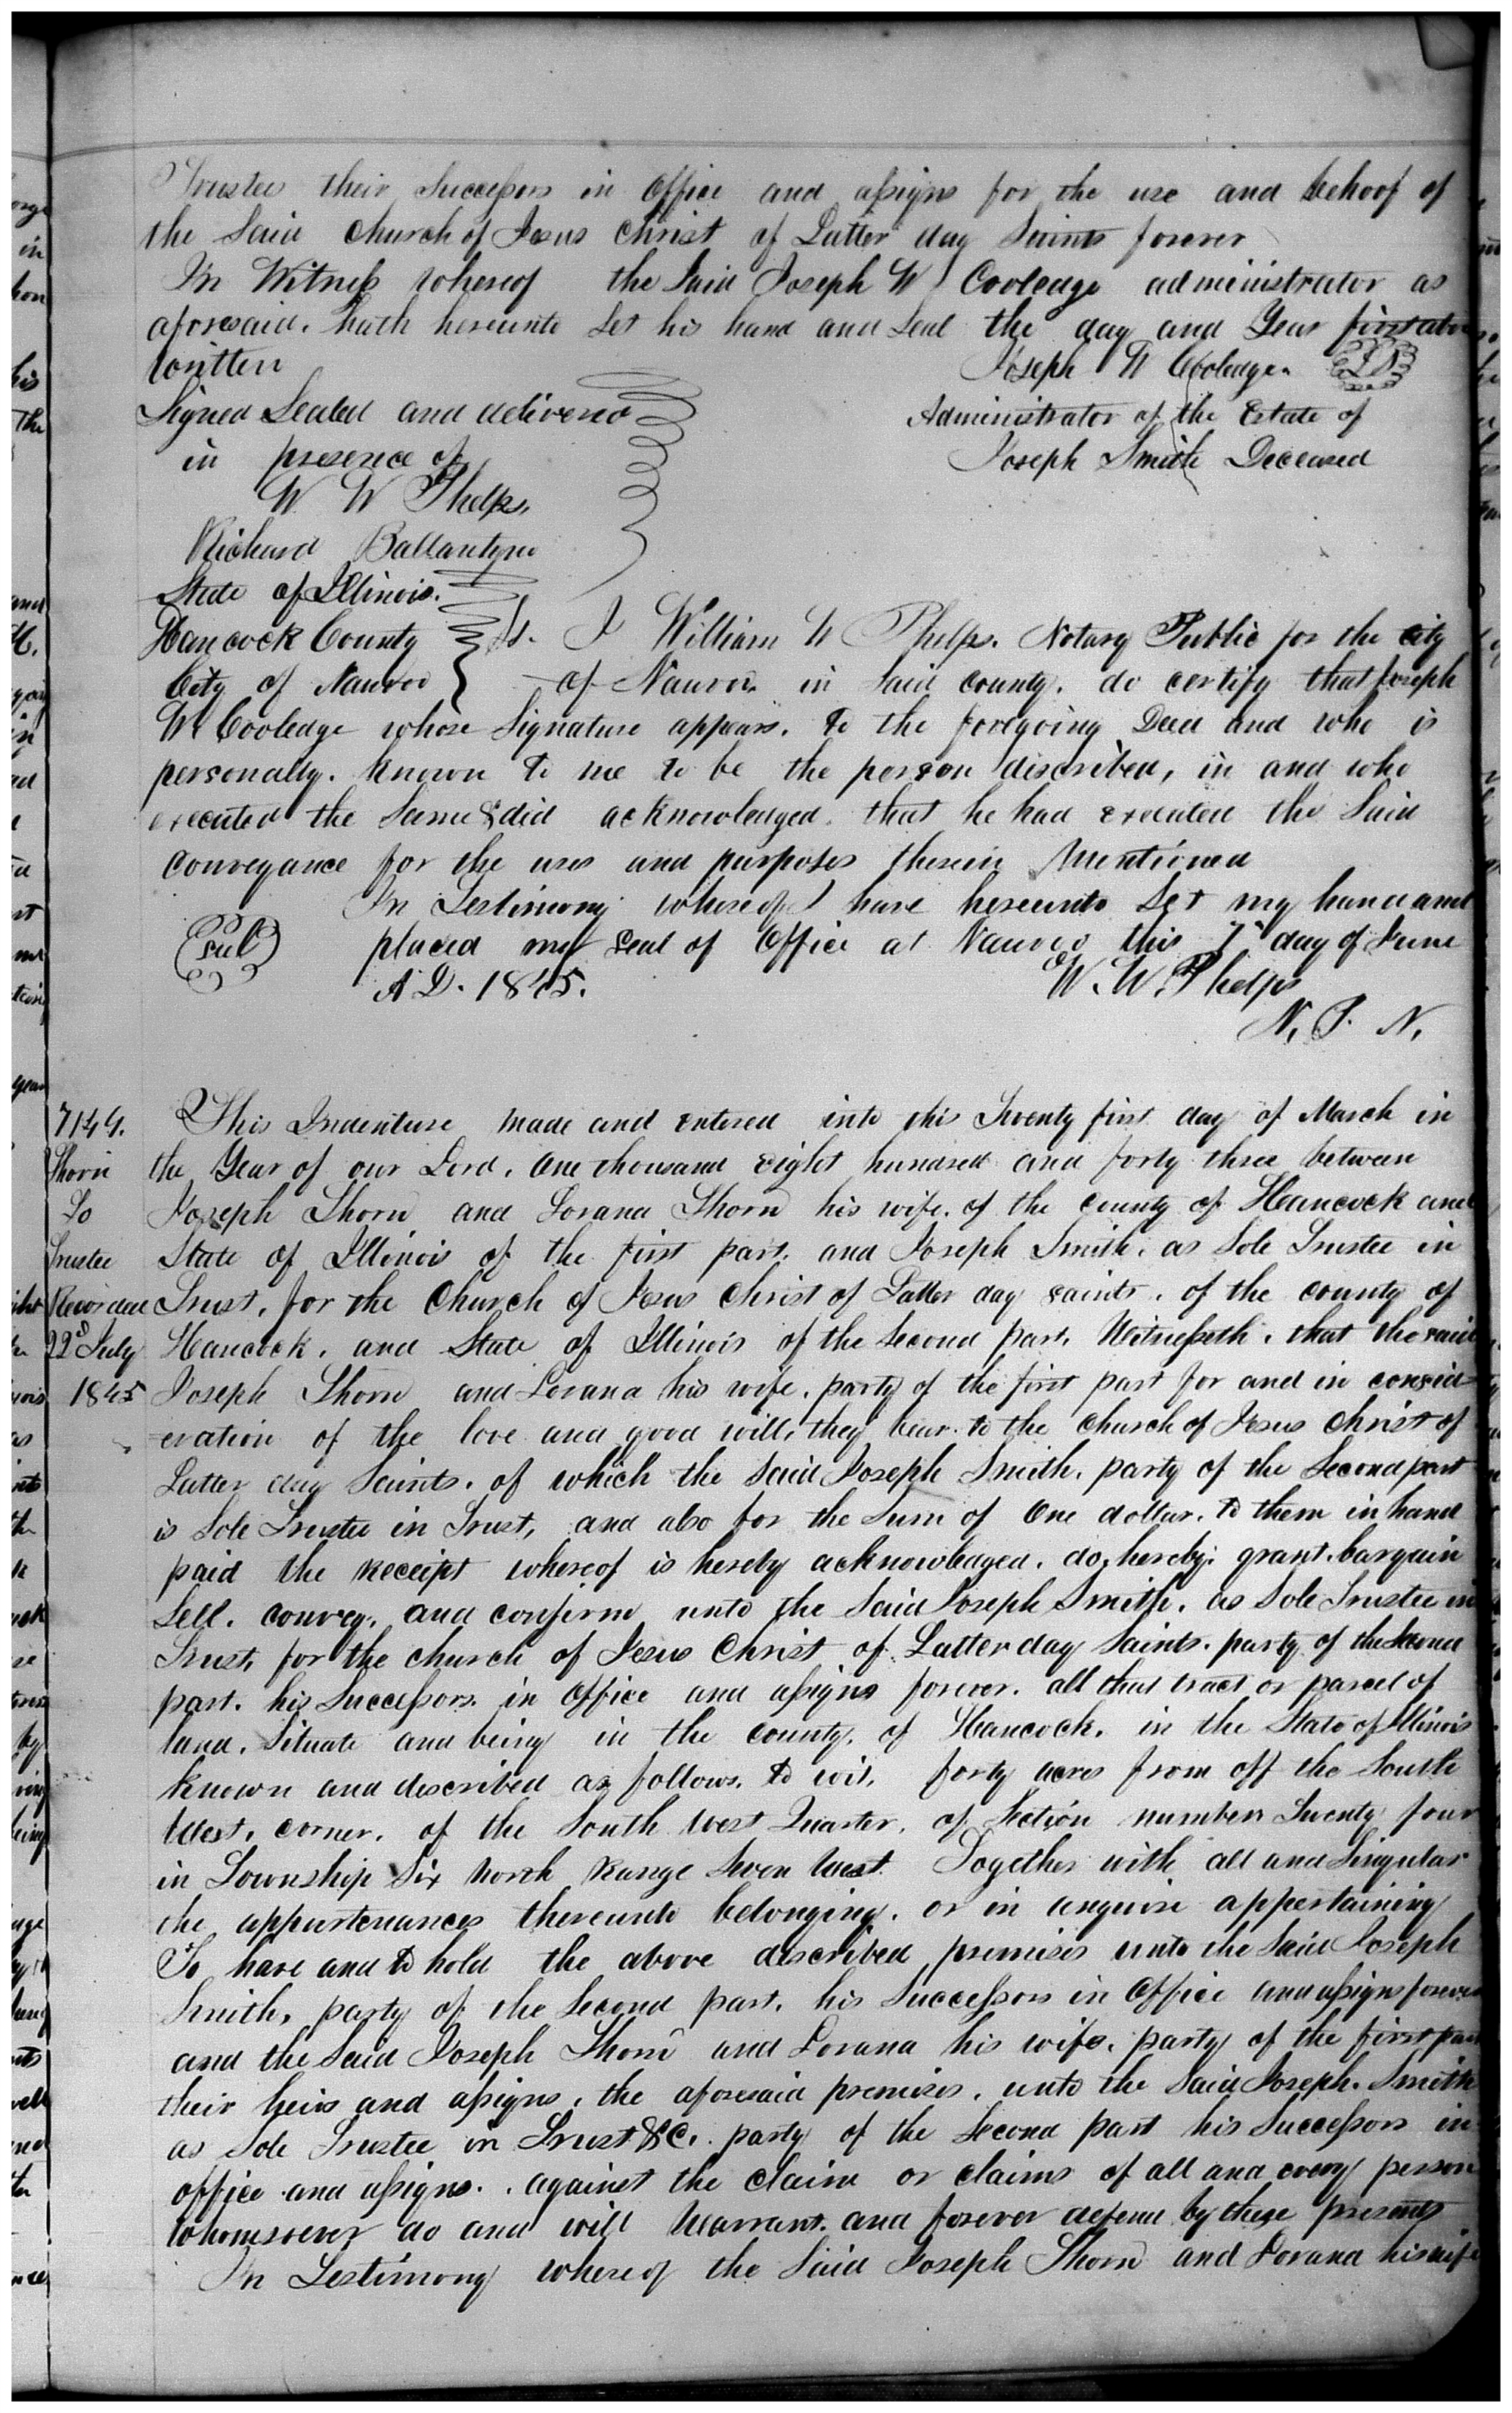 Trustee their Successors in Office and assigns for the use and behoof of
the Said Church of Jesus Christ of Latter day Saints forever
In Witness whereof the Said Joseph W Cooledge administrator as
aforesaid. hath hereunto Set his hand and Seal the day and Year first above
written
Joseph W Cooledge. LS
Signed Sealed and delivered
Administrator of the Estate of
in presence of
Joseph Smith Deceased
W W Phelps,
Richard Ballantyne
State of Illinois.
Hancock County } Ss. I William W Phelps. Notary Public for the city
City of Nauvoo of Nauvoo. in Said county. do certify that Joseph
W Cooledge whose Signature appears. to the foregoing Deed and who is
personally. known to me to be the person discribed, in and who
executed the Same & did acknowledged. that he had executed the Said
conveyance for the uses and purposes therein Mentioned
In Testimony whereof I have hereunto Set my hand and
seal placed my Seal of Office at Nauvoo this 7th day of June
A D. 1845. W. W. Phelps
N. P. N.
7149. This Indenture made and entered into this Twenty first day of March in
Thorn the Year of our Lord. One thousand eight hundred and forty three between
To Joseph Thorn and Lorana Thorn his wife. of the county of Hancock and
Trustee State of Illinois of the first part. and Joseph Smith. as Sole Trustee in
Recorded Trust. for the Church of Jesus Christ of Latter day saints. of the county of
22d July Hancock. and State of Illinois of the Second part. Witnesseth. that the said
1845 Joseph Thorn and Lorana his wife. party of the first part for and in consid-
eration of the love and good will, they bear to the Church of Jesus Christ of
Latter day Saints. of which the Said Joseph Smith. party of the Second part
is Sole Trustee in Trust, and also for the Sum of One dollar. to them in hand
paid the receipt whereof is hereby acknowledged. do, hereby. grant. bargain
Sell. convey. and confirm unto the Said Joseph Smith. as Sole Trustee in
Trust, for the church of Jesus Christ of Latter day Saints. party of the Second
part. his Successors. in Office and assigns forever. all that tract or parcel of
land. Situate and being in the county. of Hancock. in the State of Illinois
known and described as follows. to wit. forty acres from off the South
West. corner. of the South West Quarter. of Section number Twenty four
in Township Six North Range Seven West. Together with all and Singular
the appurtenances thereunto belonging. or in anywise appertaining
To have and to hold the above described premises unto the Said Joseph
Smith, party of the Second part. his Successors in Office and assigns forever
and the Said Joseph Thorn and Lorana his wife. party of the first part
their heirs and assigns. the aforesaid premises. unto the Said Joseph. Smith
as Sole Trustee in Trust &C. party of the Second part his Successors in
office and assigns. . against the claim or claims of all and every person
whomsoever do and will Warrant. and forever defend by these presents
In Testimony whereof the Said Joseph Thorn and Lorana his wife